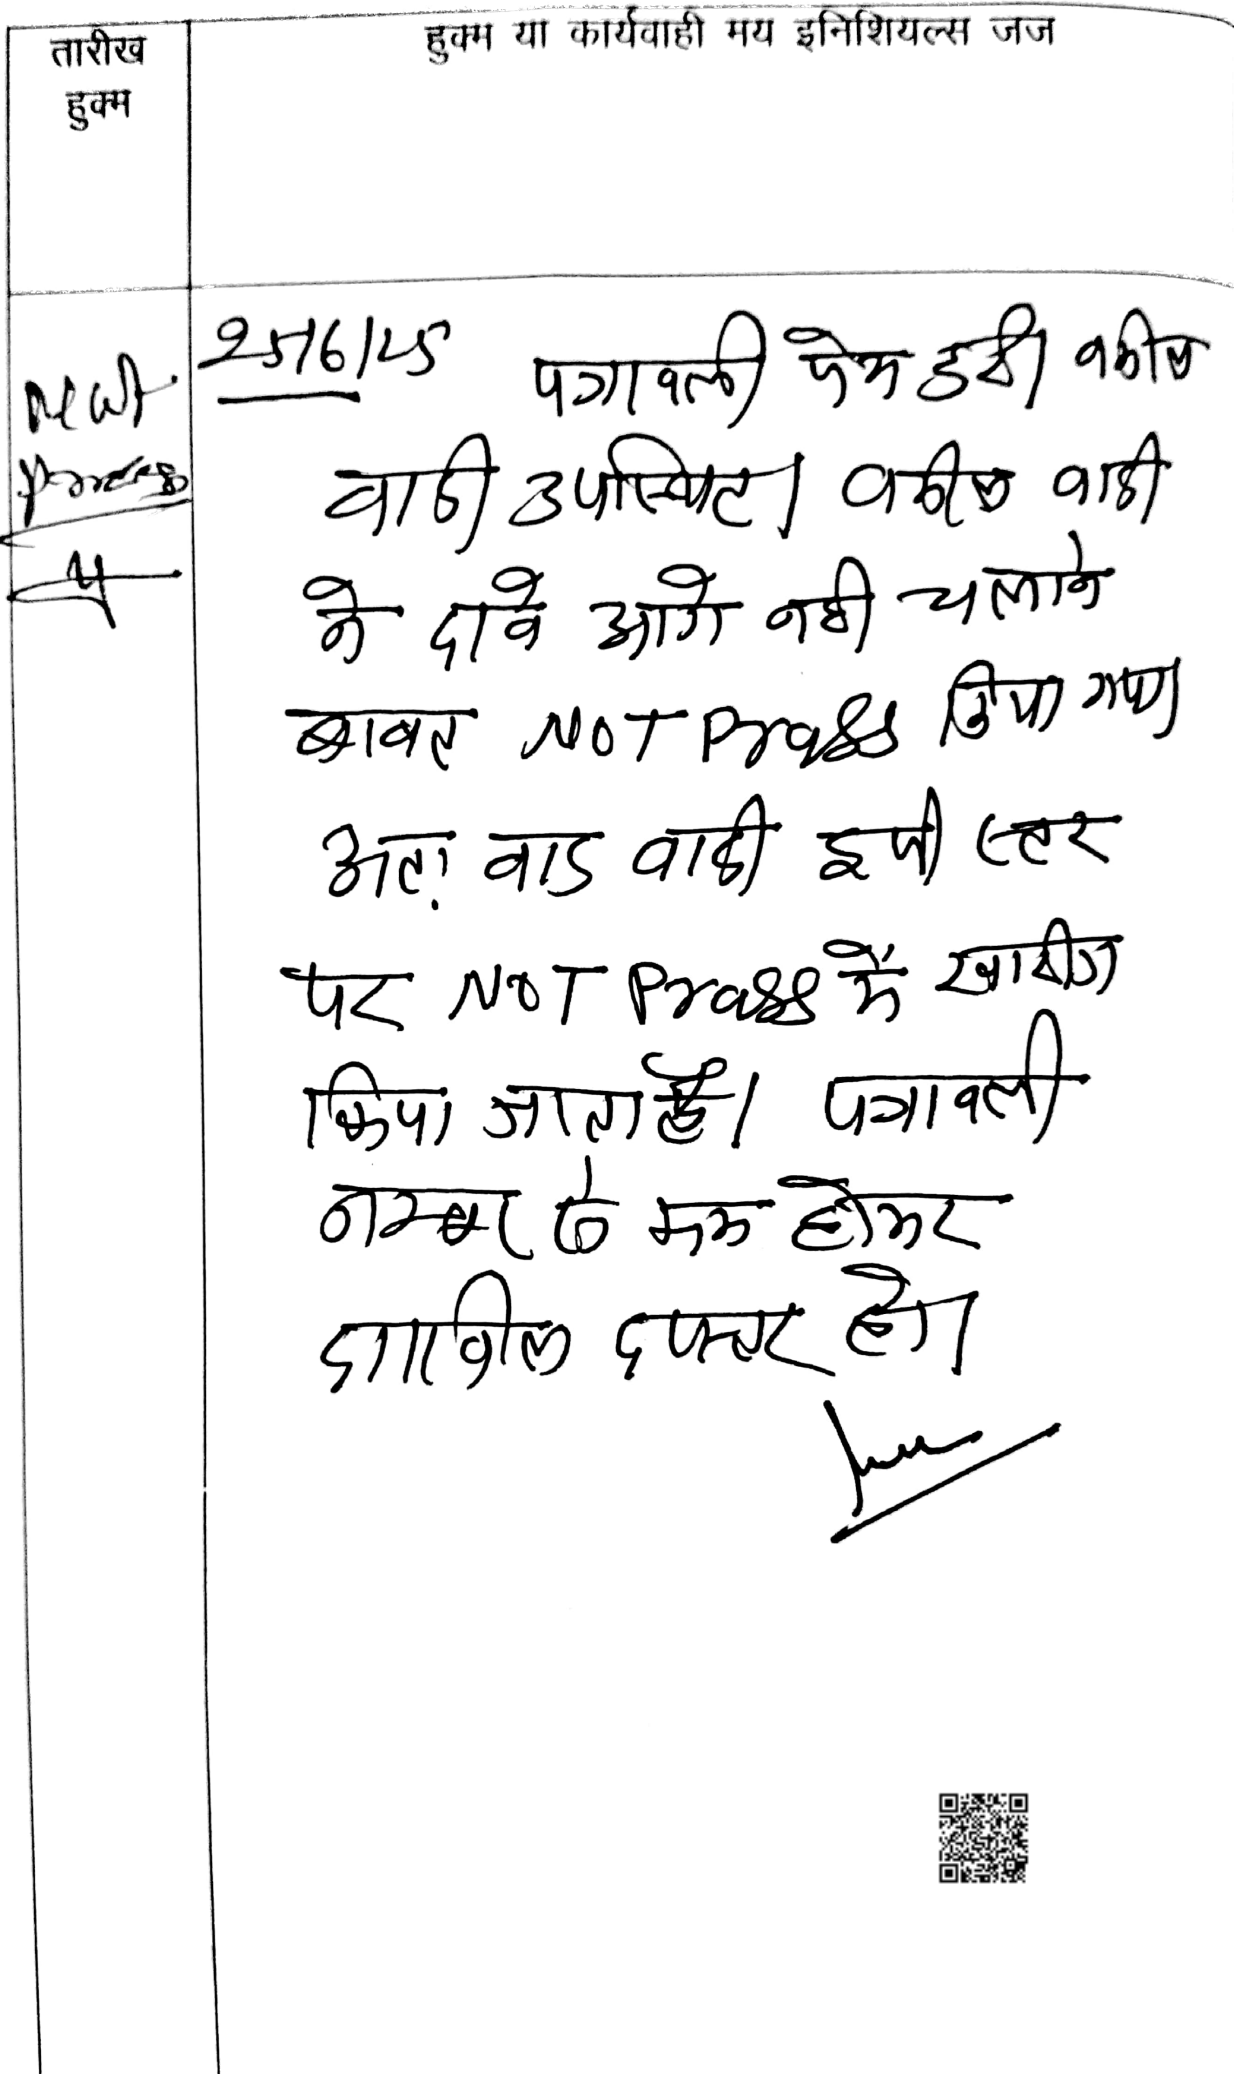 तारीख
हुक्म
हुक्म या कार्यवाही मय इनिशियल्स जज
25/6/25 पत्रावली पेश हुई। वकील
वादी उपस्थित। वकील वादी
ने दावे आगे नही चलाने
बाबत NOT Prass किया गया
अतः वाद वादी इसी स्तर
पर NOT Prass में खारीज
किया जाता है। पत्रावली
नम्बर से कम होकर
दाखिल दफ्तर हो।